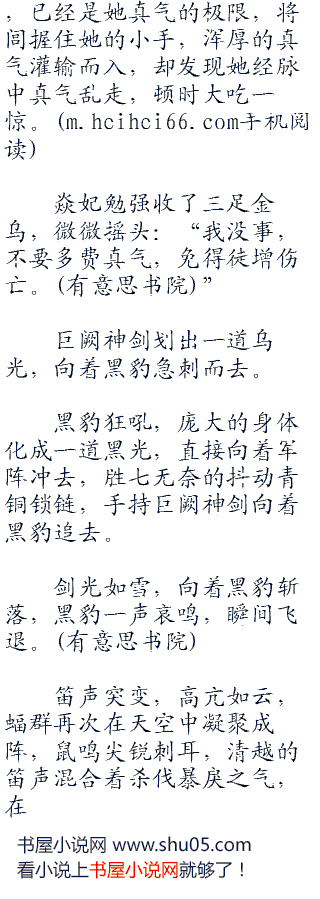 ，已经是她真气的极限，将
闾握住她的小手，浑厚的真
气灌输而入，却发现她经脉
中真气乱走，顿时大吃一
惊。(m.hcihci66.com手机阅
读)
焱妃勉强收了三足金
乌，微微摇头：“我没事，
不要多费真气，免得徒增伤
亡。(有意思书院)”
巨阙神剑划出一道乌
光，向着黑豹急刺而去。
黑豹狂吼，庞大的身体
化成一道黑光，直接向着军
阵冲去，胜七无奈的抖动青
铜锁链，手持巨阙神剑向着
黑豹追去。
剑光如雪，向着黑豹斩
落，黑豹一声哀鸣，瞬间飞
退。(有意思书院)
笛声突变，高亢如云，
蝠群再次在天空中凝聚成
阵，鼠鸣尖锐刺耳，清越的
笛声混合着杀伐暴戾之气，
在
书屋小说网 www.shu05.com
看小说上书屋小说网就够了！